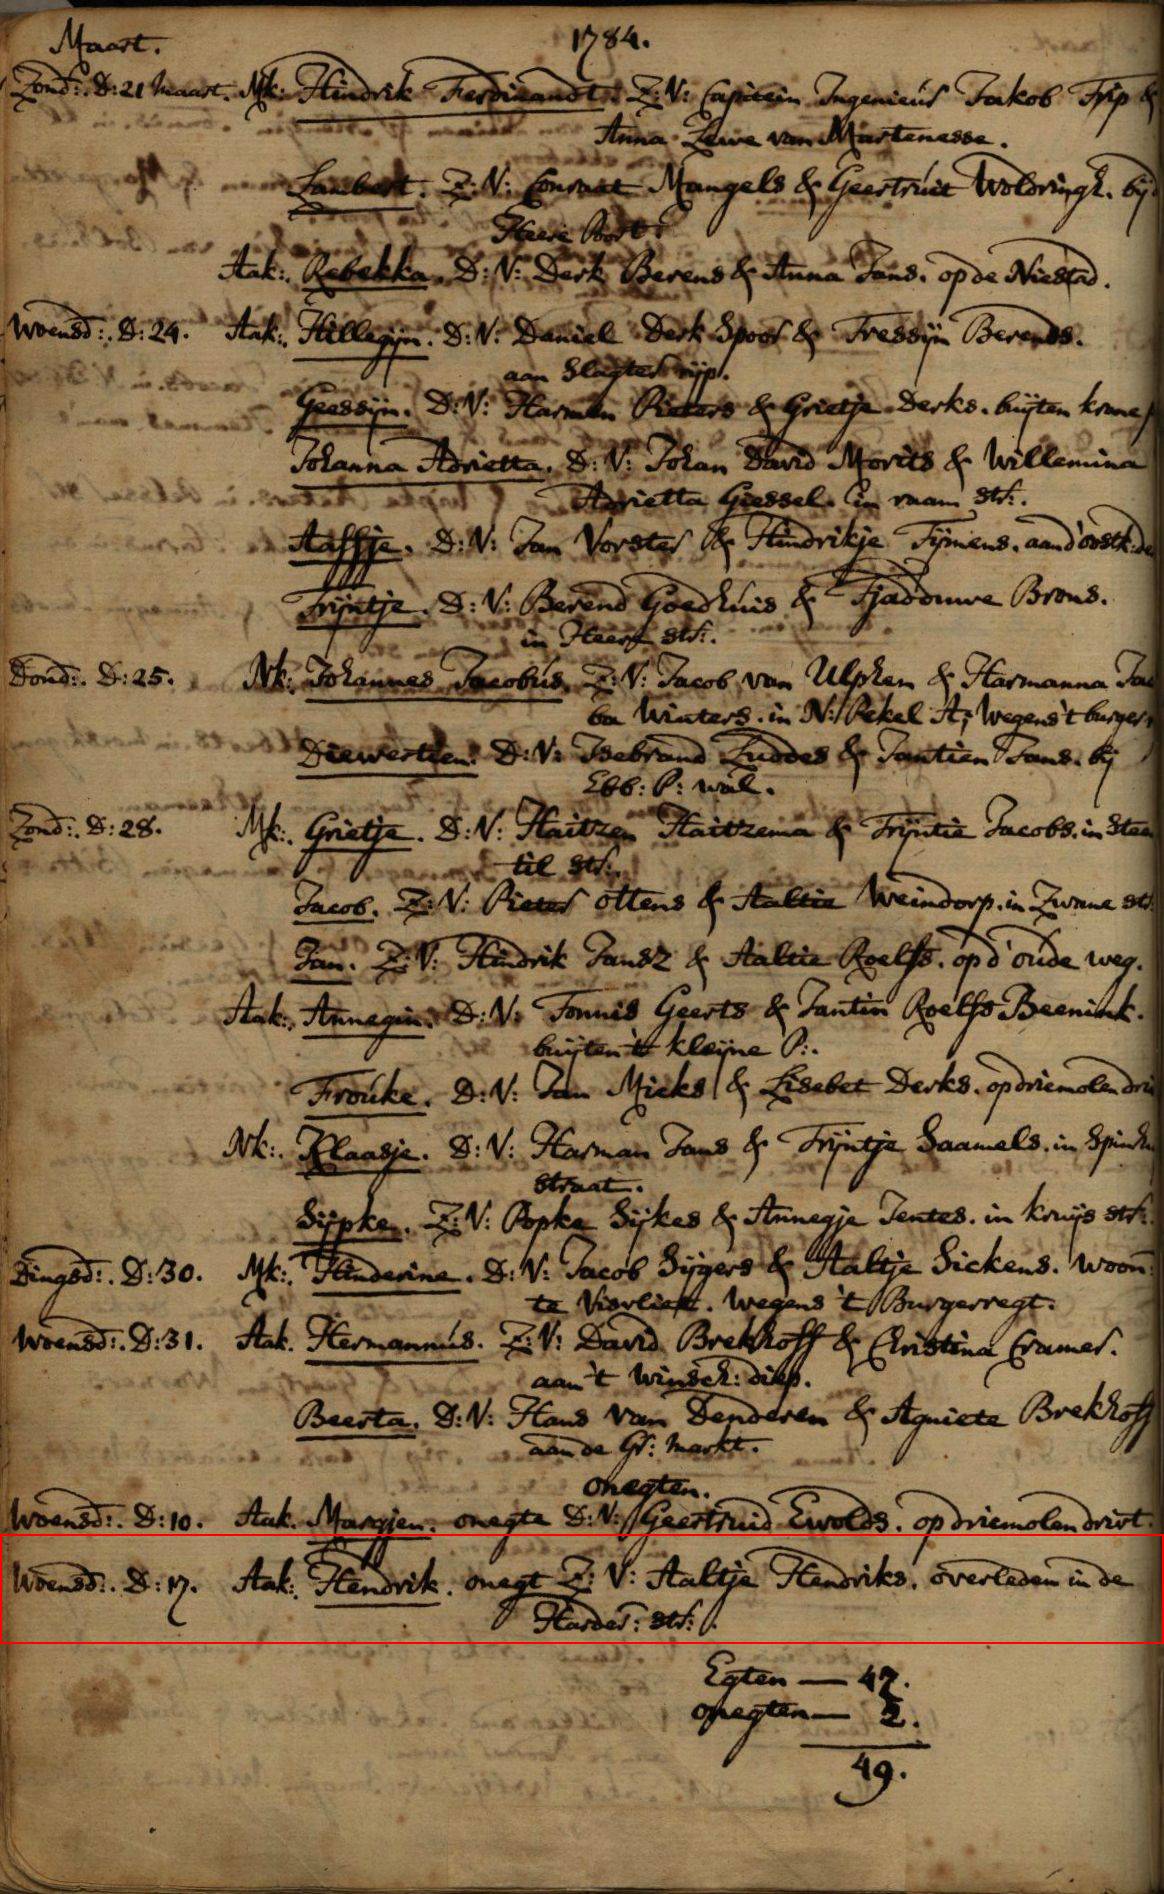 Maart. 1784.
Zond:. D: 21 Maart. Mk: Hindrik Ferdinandt. Z: V: Capitein Ingenieur Jakob Trip &
Anna Lewe van Martenesse.
Lambert. Z: V: Conraat Mangels & Geertruit Woldringh. bij d
Heere Poort.
Aak:. Rebekka. D: V: Derk Berens & Anna Jans. op de Niestad.
Woensd:. D: 24. Aak:. Hillegijn. D: V: Daniel Derk Spoor & Tressijn Berends.
aan Slagter rijp.
Geessijn. D: V: Harmen Pieters & Grietje Derks. buijten krane
Johanna Adrietta. D: V: Johan David Morits & Willemina
Adrietta Giessel. in raam str:.
Aaffje. D: V: Jan Vorster & Hindrikje Tijmens. aand'oostk: de
Trijntje. D: V: Berend Goedhuis & Tjadduwe Brons.
in Heere str:.
Dond:. D: 25. Nk:. Johannes Jacobus. Z: V: Jacob van Ulphen & Harmanna Jac
ba Winters. in N: Pekel A; Wegens 't burger
Diewertien. D: V: Isebrand Luddes & Jantien Jans. bij
Ebb: P: wal.
Zond:. D: 28. Mk:. Grietje. D: V: Haitzen Haitzema & Trijntie Jacobs. in Steen
til str:.
Jacob. Z: V: Pieter ottens & Aaltie Weindorp. in Zwane str:
Jan. Z: V: Hindrik Jansz & Aaltie Roelfs. op d'oude weg.
Aak:. Annegin. D: V: Tonnis Geerts & Jantin Roelfs Beenink.
buijten 't kleijne P:.
Frouke. D: V: Jan Mieks & Lisebet Derks. op driemolen dri
Nk:. Klaasje. D: V: Harman Jans & Trijntje Saamels. in Spinh
straat.
Sijpke. Z: V: Popke Sijkes & Annegje Jentes. in kruijs str:.
Dingsd:. D: 30. Mk:. Hinderine. D: V: Jacob Sijgers & Aaltje Sickens. woon:
te Visvliet. Wegens 't Burgerregt.
Woensd:. D: 31. Aak. Hermannus. Z: V: David Brekhoff & Christina Cramer.
aan 't Winsch: diep.
Beerta. D: V: Hans van Denderen & Agniete Brekhoff
aan de Gr: markt.
onegten.
Woensd:. D: 10. Aak. Margjen. onegte D: V: Geertruid Ewolds. op driemolen drivt.
Woensd:. D: 17. Aak:. Hendrik. onegt Z: V: Aaltje Hendriks. overleden in de
Harder: str:.
Egten — 47.
onegten — 2.
49.